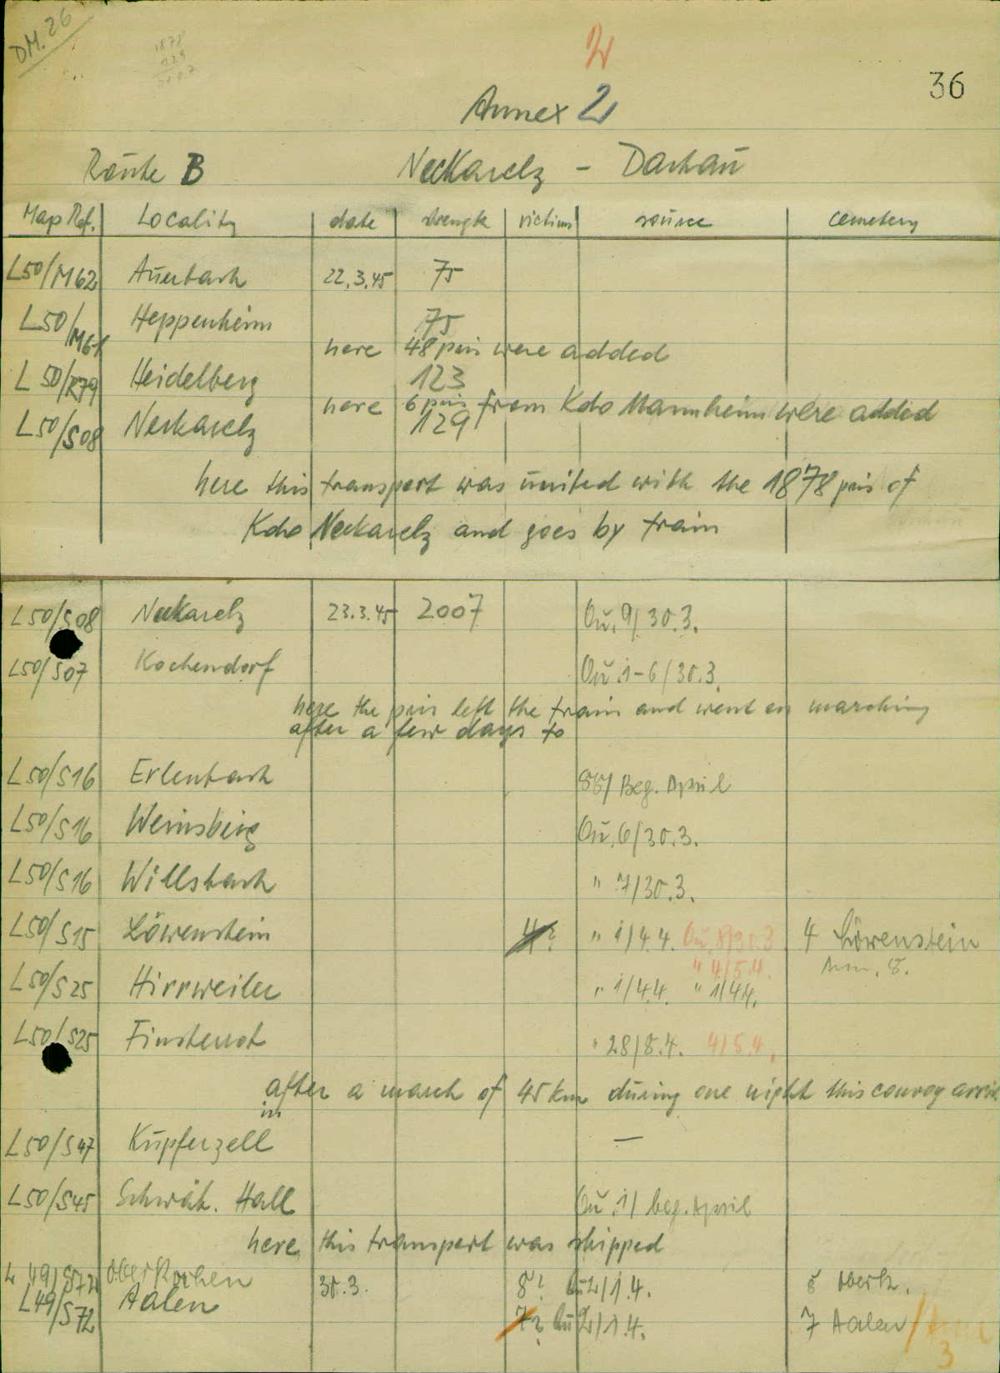 DM. 26
1878
129
2007
2
36
Annex 2
Route B Neckarelz - Dachau
Map Ref. Locality date strength victims source cemetery
L50/M62 Auerbach 22.3.45 75
L50/M61 Heppenheim 75
here 48 pris were added
L50/R79 Heidelberg 123
here 6 pris from Kdo Mannheim were added
L50/S08 Neckarelz 129
here this transport was united with the 1878 pris of
Kdo Neckarelz and goes by train
L50/S08 Neckarelz 23.3.45 2007 Qu. 9/30.3.
L50/S07 Kochendorf Qu. 1-6/30.3.
here the pris left the train and went on marching
after a few days to
L50/S16 Erlenbach /Beg. April
L50/S16 Weinsberg Qu. 6/30.3.
L50/S16 Willsbach " 7/30.3.
L50/S15 Löwenstein 4? " 1/4.4. Qu. 8/30.3 4 Löwenstein
" 4/5.4.
L50/S25 Hirrweiler " 1/4.4. " 1/4.4.
L50/S25 Finsterrot " 28/8.4. 4/5.4.
after a march of 45 km during one night this convoy
in
L50/S47 Kupferzell —
L50/S45 Schwäb. Hall Qu. 1/beg. April
here this transport was shipped
L49/S72 Oberkochen 30.3. 8? Qu 2/1.4. 8 Oberk.
L49/S72 Aalen 7? Qu 2/1.4. 7 Aalen
3